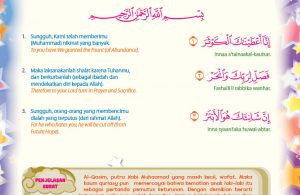 بِسْمِ اللّٰهِ الرَّحْمٰنِ الرَّحِيْمِ
1. Sungguh, Kami telah memberimu
(Muhammad) nikmat yang banyak.
To you have We granted the Fount (of Abundance).
اِنَّآ اَعْطَيْنٰكَ الْكَوْثَرَ
Innaa a'tainaakal-kautsar.
2. Maka laksanakanlah shalat karena Tuhanmu,
dan berkurbanlah (sebagai ibadah dan
mendekatkan diri kepada Allah).
Therefore to your Lord turn in Prayer and Sacrifice.
فَصَلِّ لِرَبِّكَ وَانْحَرْ
Fashalli li rabbika wanhar.
3. Sungguh, orang-orang yang membencimu
dialah yang terputus (dari rahmat Allah).
For he who hates you, he will be cut off (from
Future Hope).
اِنَّ شَانِئَكَ هُوَ الْاَبْتَرُ
Inna syaani'aka huwal-abtar.
PENJELASAN
SURAT
Al-Qasim, putra Nabi Muhammad yang masih kecil, wafat. Maka
kaum quraisy pun mencercai bahwa kematian anak laki-laki itu
sebagai pertanda pemutus keturunan. Dengan demikian dianggap